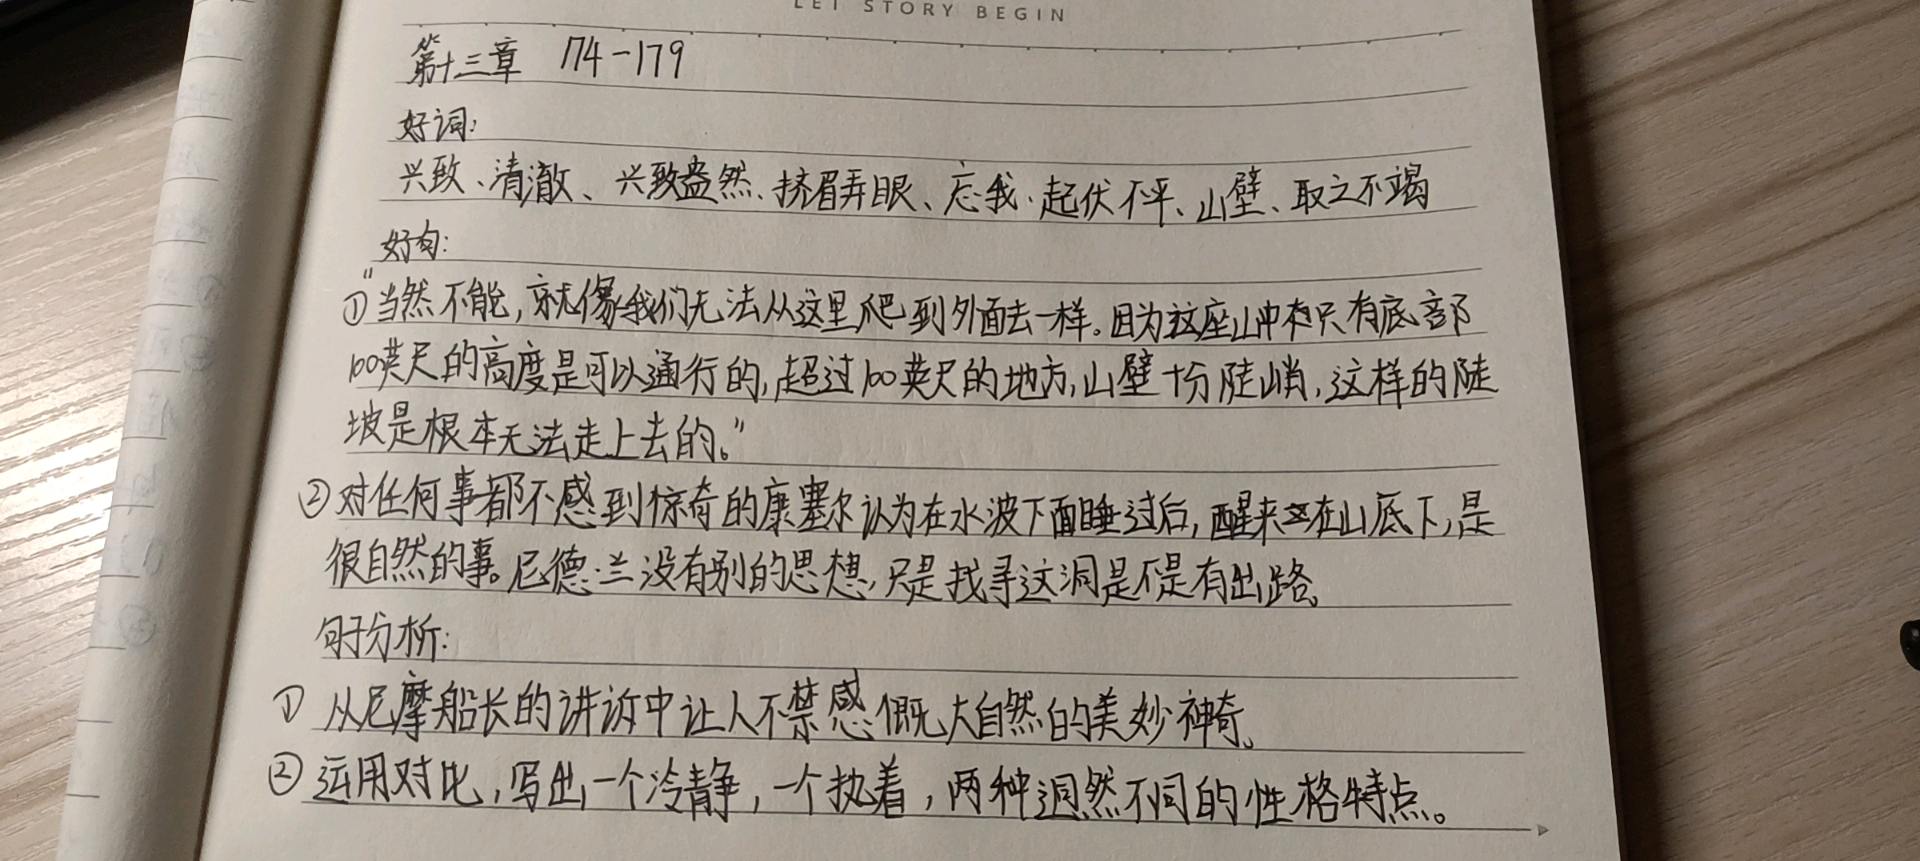 LET STORY BEGIN
第十三章 174-179
好词:
兴致、清澈、兴致盎然、挤眉弄眼、忘我、起伏不平、山壁、取之不竭
好句:
①"当然不能,就像我们无法从这里爬到外面去一样。因为这座山中在只有底部
100英尺的高度是可以通行的,超过100英尺的地方,山壁十分陡峭,这样的陡
坡是根本无法走上去的。"
②对任何事都不感到惊奇的康塞尔认为在水波下面睡过后,醒来又在山底下,是
很自然的事。尼德·兰没有别的思想,只是找寻这洞是不是有出路。
句子分析:
① 从尼摩船长的讲诉中让人不禁感慨大自然的美妙神奇。
② 运用对比,写出一个冷静,一个执着,两种迥然不同的性格特点。